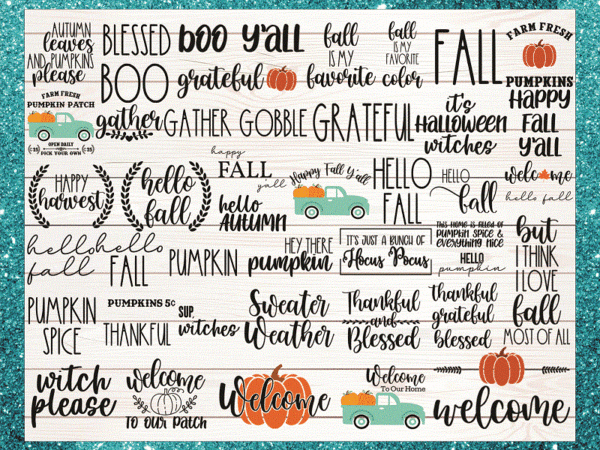 AUTUMN
leaves
AND PUMPKINS
please
BLESSED
boo y'all
fall
is my
favorite
fall
IS MY
FAVORITE
color
FALL
FARM FRESH
PUMPKINS
BOO
grateful
FARM FRESH
PUMPKIN PATCH
OPEN DAILY
PICK YOUR OWN
gather
GATHER
GOBBLE
GRATEFUL
it's
Halloween
witches
Happy
Fall
Y'all
HAPPY
harvest
hello
fall
happy
FALL
y'all
hello
AUTUMN
Happy Fall Y'all
HELLO
FALL
HELLO
fall
welcome
hello fall
hello
fall
hello
FALL
PUMPKIN
HEY THERE
pumpkin
IT'S JUST A BUNCH OF
Hocus Pocus
THIS HOME IS FILLED OF
PUMPKIN SPICE &
EVERYTHING NICE
HELLO
pumpkin
but
I THINK
I LOVE
fall
MOST OF ALL
PUMPKIN
SPICE
PUMPKINS 5¢
THANKFUL
SUP,
witches
Sweater
Weather
Thankful
and
Blessed
thankful
grateful
blessed
witch
please
Welcome
TO OUR PATCH
Welcome
Welcome
To Our Home
welcome